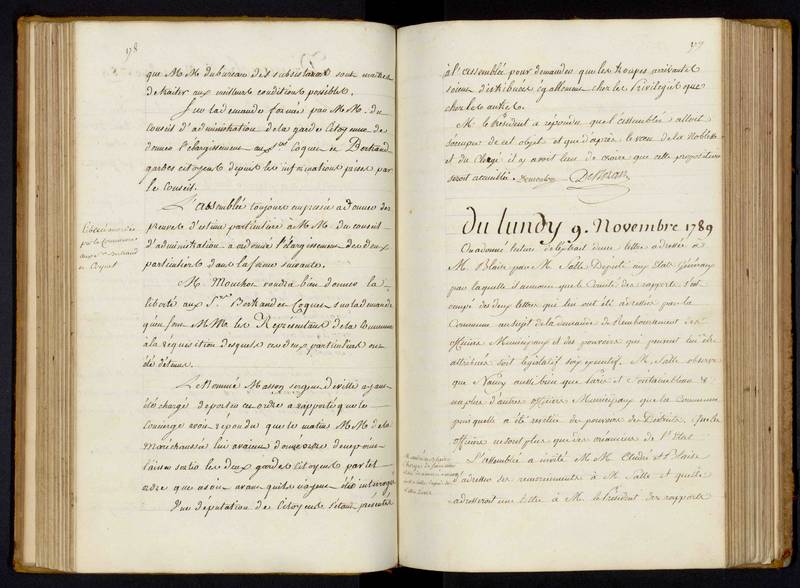 78
que M M du bureau des subsistances sont maitres
de traiter aux meilleurs conditions possibles.
Sur la demande formée par M M. du
Conseil d'administration de la garde Citoyenne de
donner l'élargissement aux Srs Coquer et Bertrand
gardes citoyens depuis les informations prises par
le Conseil.
L'assemblée toujours empressée a donner des
preuves d'estime particuliere à M M du conseil
d'administration a ordonné l'élargissement des deux
particuliers dans la forme suivante.
M. Mouchot voudra bien donner la
liberté aux Srs Bertrand et Coquer sur la demande
qu'en font M Ms les Représentans de la Commune
à la réquisition desquels ces deux particuliers ont
été détenus.
Le nommé Masson sergent de ville ayant
été chargé de porter cet ordre a rapporté que le
Concierge avoit repondu que le matin M M de la
Maréchaussée lui avoient donné ordre de ne point
laisser sortir les deux gardes Citoyens par tel
ordre que ce soit avant qu'ils n'ayent été interrogés
Une députation de Citoyens s'étant présentée
Liberté accordée
par la Commune
aux Srs Bertrand
et Coquer
79
à l'assemblée pour demander que les troupes arrivantes
soient distribuées également chez les Privilegiés que
chez les autres.
M. le Président a répondu que l'assemblée alloit
s'occuper de cet objet et que d'après le voeu de la Noblesse
et du Clergé il y avoit lieu de croire que cette proposition
seroit accueillie.
du lundy 9. Novembre 1789
On a donné lecture de l'extrait d'une lettre adressée à
M. Blaise par M. Salle Député aux Etats Généraux
par laquelle il annonce que le Comité des rapports s'est
occupé des deux lettres qui leur ont été adressées par la
Commune au sujet de la demande de Remboursement des
officiers Municipaux et des pouvoirs qui peuvent lui être
attribués soit legislatif soit executif. M. Salle observe
que Nancy aussi bien que Paris et Fontainebleau
n'a plus d'autres officiers Municipaux que la Commune
puisqu'elle a été revêtue de pouvoirs des Districts. Que les
officiers ne sont plus que des créanciers de l'Etat.
L'assemblée a invité M M. et Blaise
d'adresser des remerciments à M. Salle et qu'ils
adresseront une lettre à M. le Président des rapports